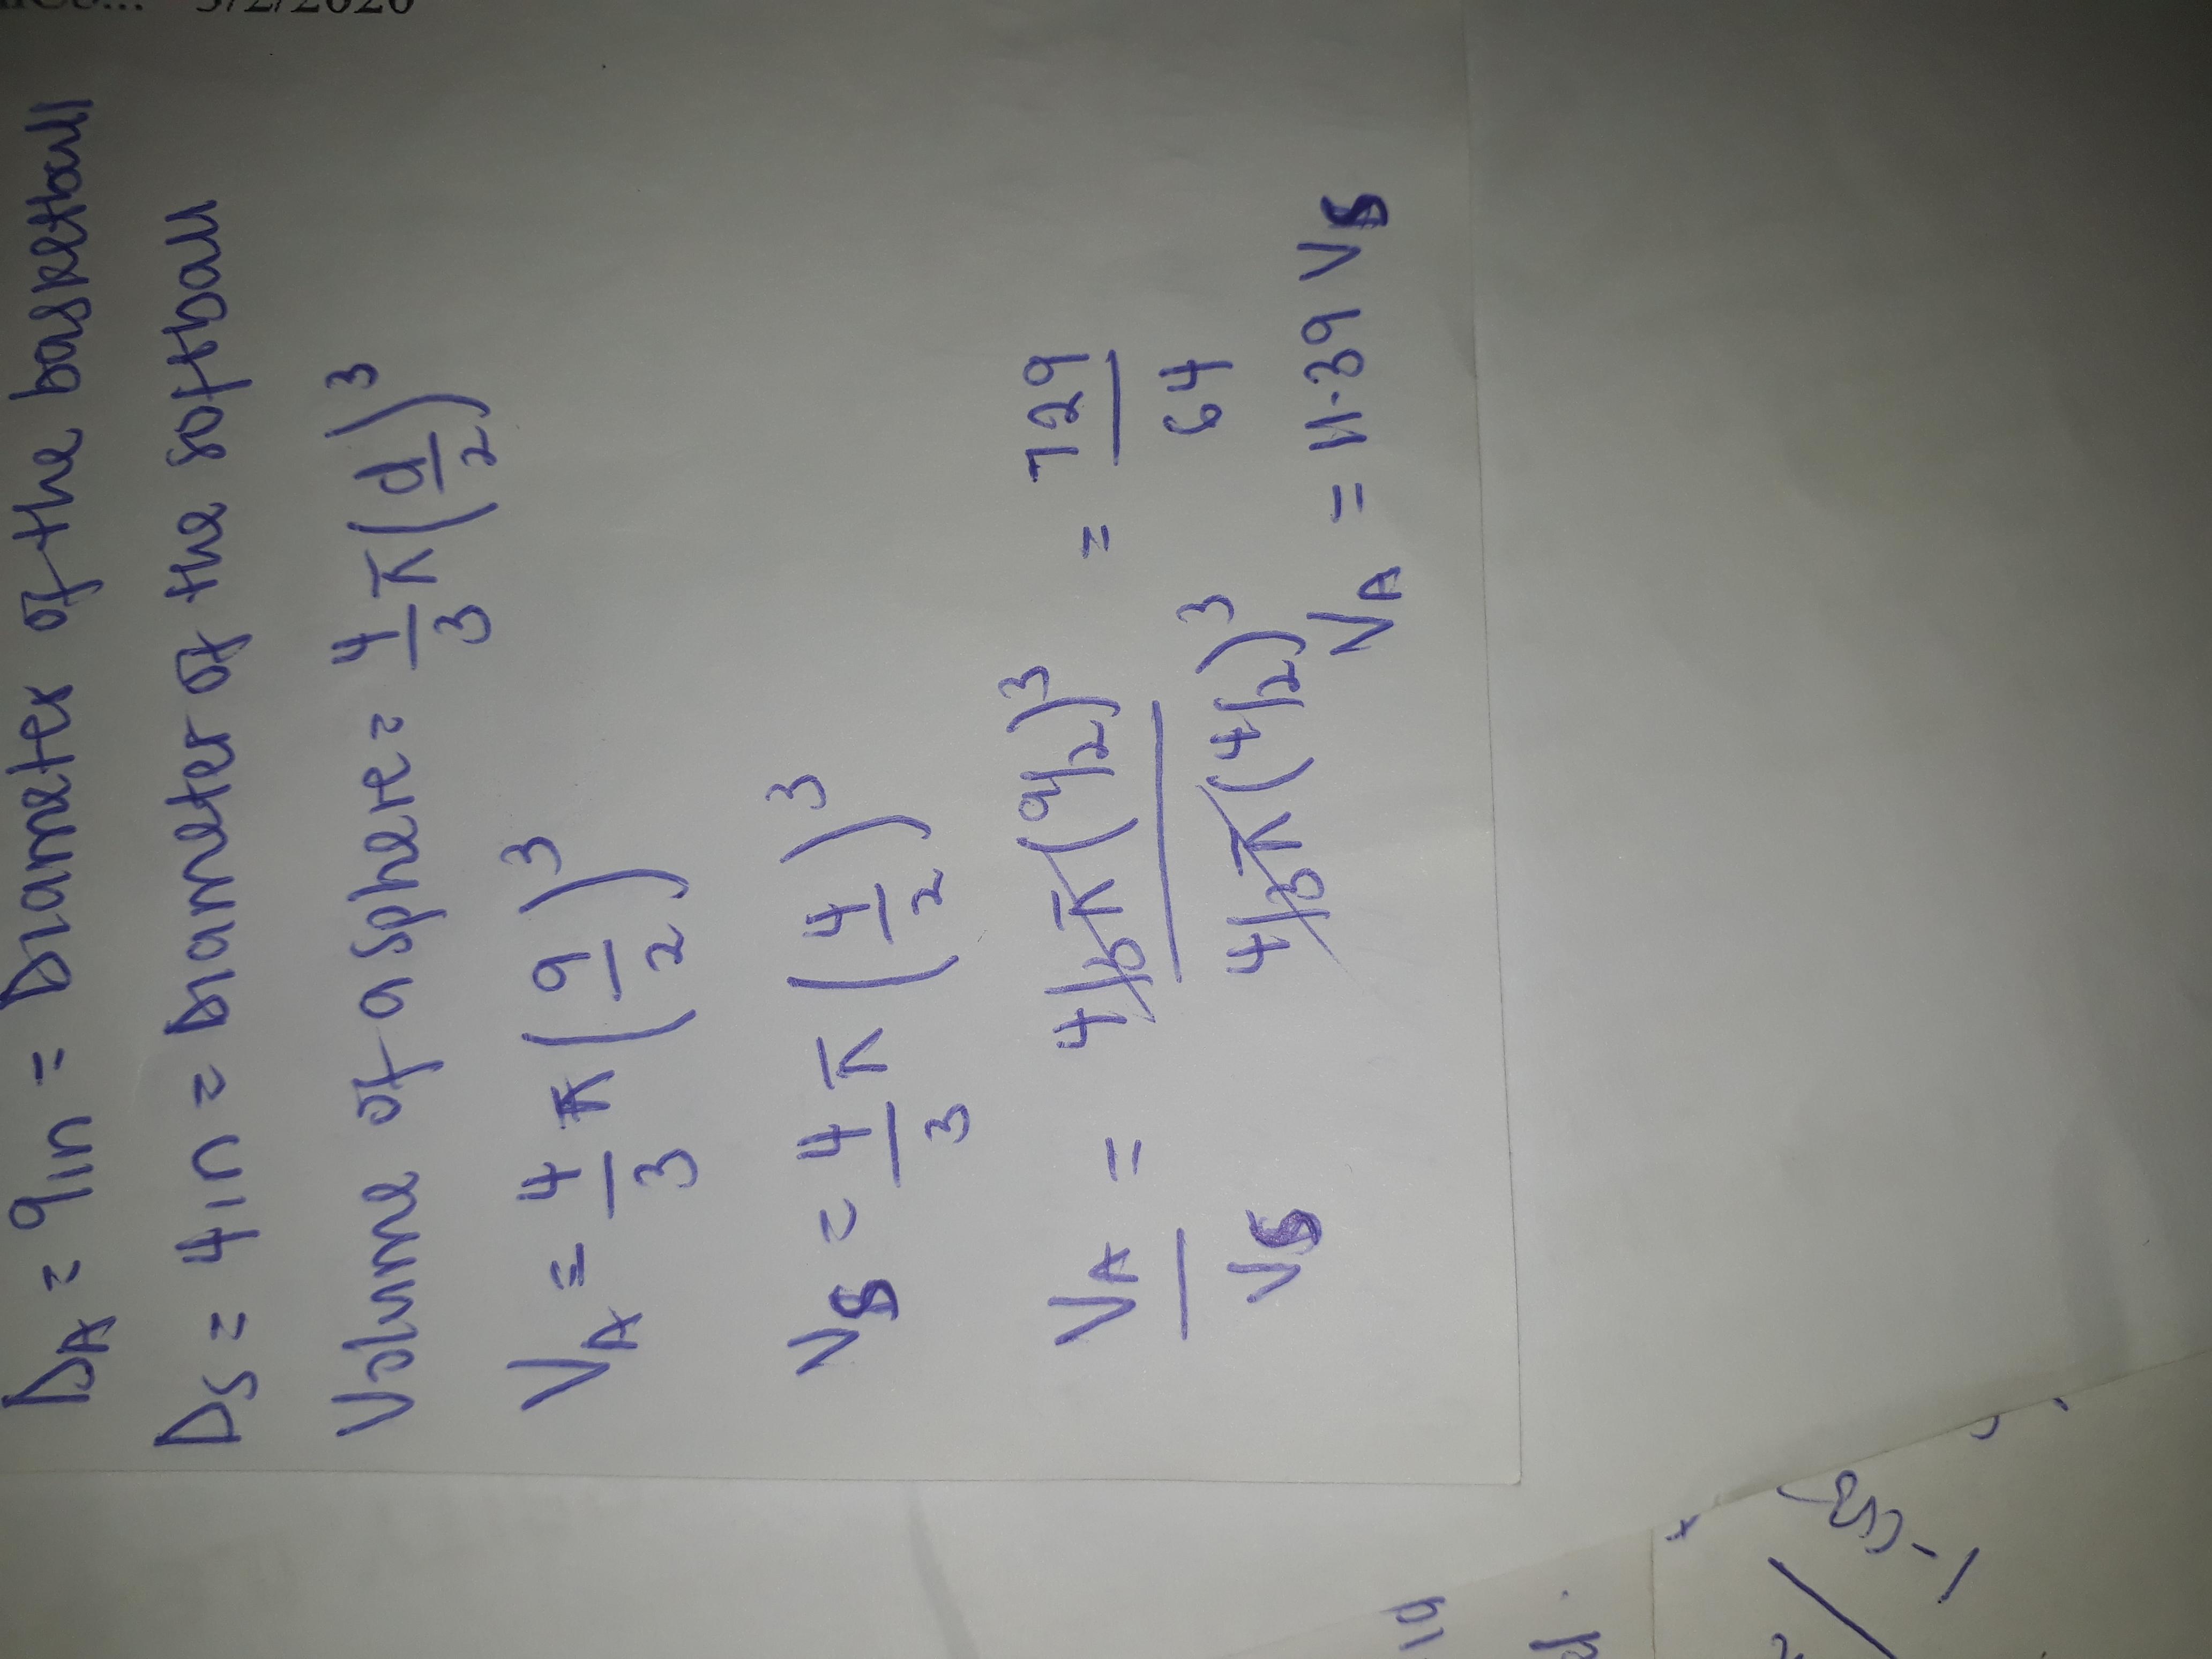 3/2/2020
DA = 9in = Diameter of the basketball
Ds = 4in = Diameter of the softball
Volume of a sphere = 4/3 π(d/2)³
VA = 4/3 π(9/2)³
VS = 4/3 π(4/2)³
VA/VS = 4/3π(9/2)³ / 4/3π(4/2)³ = 729/64
VA = 11.39 VS